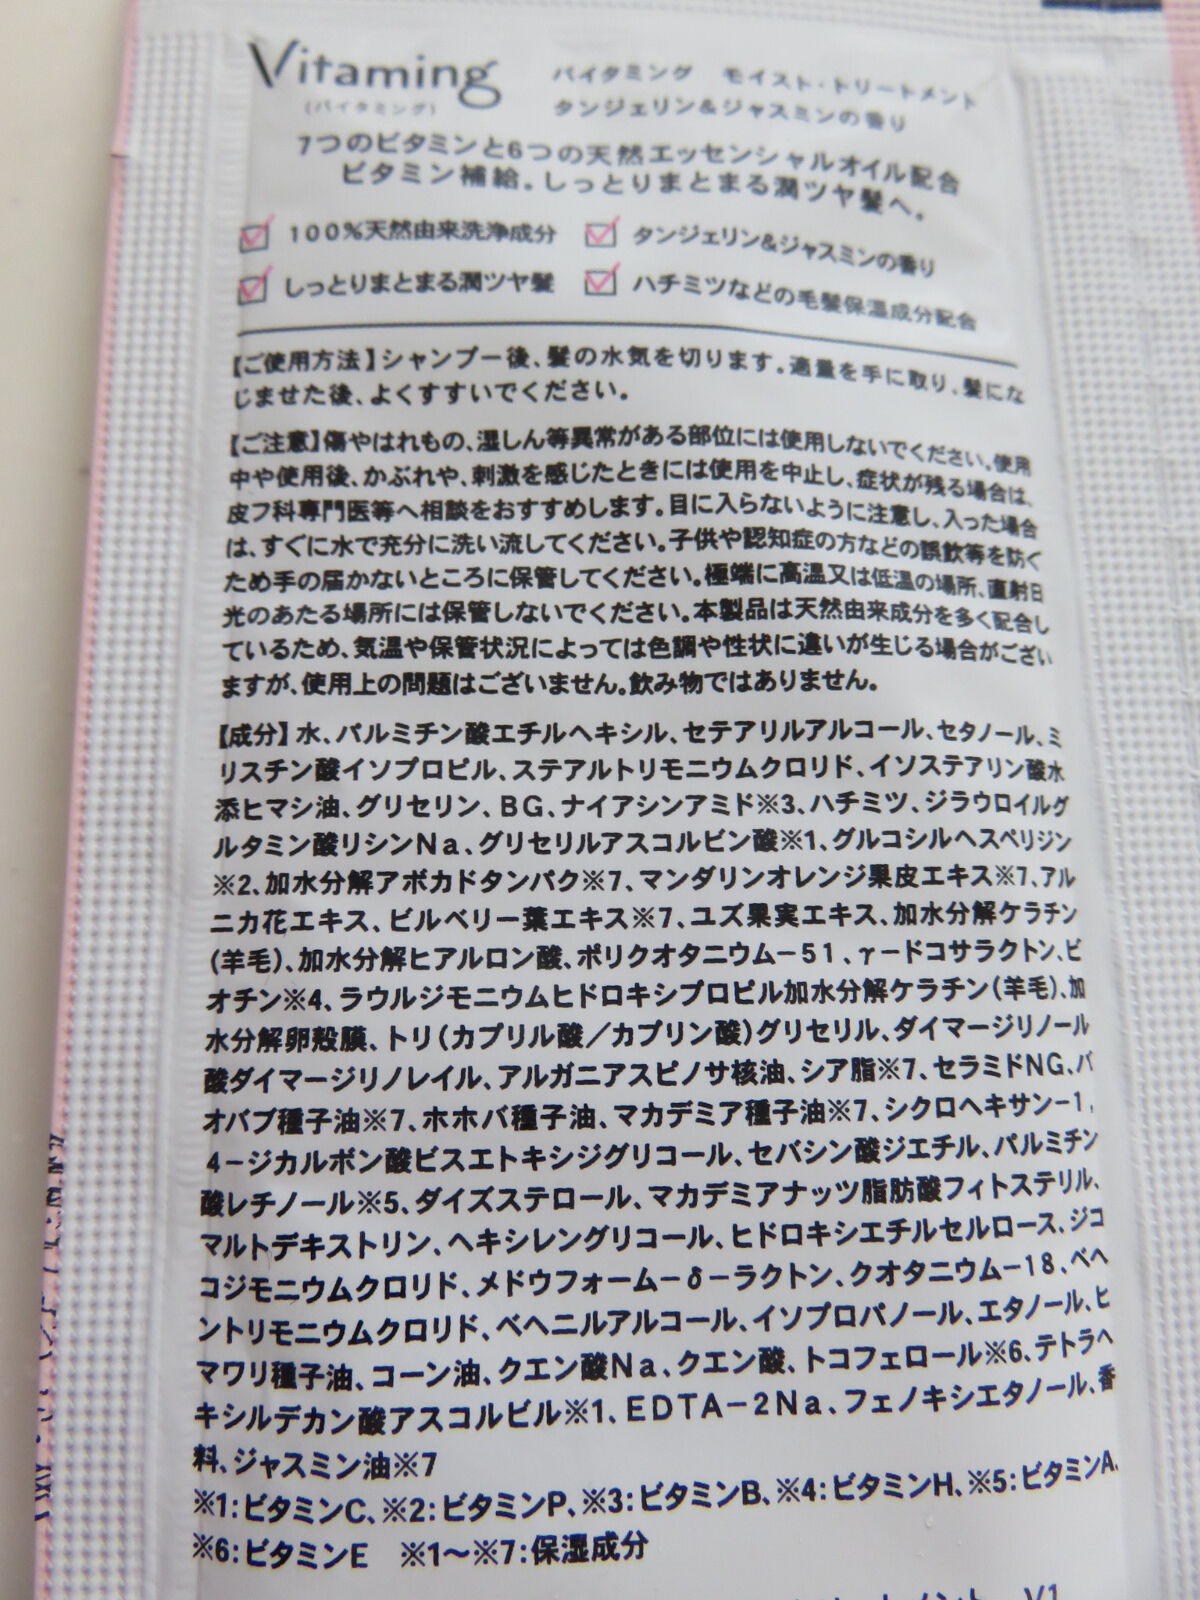 Vitaming
(バイタミング)
バイタミング モイスト・トリートメント
タンジェリン&ジャスミンの香り
7つのビタミンと6つの天然エッセンシャルオイル配合
ビタミン補給。しっとりまとまる潤ツヤ髪へ。
100%天然由来洗浄成分
タンジェリン&ジャスミンの香り
しっとりまとまる潤ツヤ髪
ハチミツなどの毛髪保湿成分配合
【ご使用方法】シャンプー後、髪の水気を切ります。適量を手に取り、髪にな
じませた後、よくすすいでください。
【ご注意】傷やはれもの、湿しん等異常がある部位には使用しないでください。使用
中や使用後、かぶれや、刺激を感じたときには使用を中止し、症状が残る場合は、
皮フ科専門医等へ相談をおすすめします。目に入らないように注意し、入った場合
は、すぐに水で充分に洗い流してください。子供や認知症の方などの誤飲等を防ぐ
ため手の届かないところに保管してください。極端に高温又は低温の場所、直射日
光のあたる場所には保管しないでください。本製品は天然由来成分を多く配合し
ているため、気温や保管状況によっては色調や性状に違いが生じる場合がござい
ますが、使用上の問題はございません。飲み物ではありません。
【成分】水、パルミチン酸エチルヘキシル、セテアリルアルコール、セタノール、ミ
リスチン酸イソプロピル、ステアルトリモニウムクロリド、イソステアリン酸水
添ヒマシ油、グリセリン、BG、ナイアシンアミド※3、ハチミツ、ジラウロイルグ
ルタミン酸リシンNa、グリセリルアスコルビン酸※1、グルコシルヘスペリジン
※2、加水分解アボカドタンパク※7、マンダリンオレンジ果皮エキス※7、アル
ニカ花エキス、ビルベリー葉エキス※7、ユズ果実エキス、加水分解ケラチン
(羊毛)、加水分解ヒアルロン酸、ポリクオタニウム－51、γ－ドコサラクトン、ビ
オチン※4、ラウルジモニウムヒドロキシプロピル加水分解ケラチン(羊毛)、加
水分解卵殻膜、トリ(カプリル酸／カプリン酸)グリセリル、ダイマージリノール
酸ダイマージリノレイル、アルガニアスピノサ核油、シア脂※7、セラミドNG、バ
オバブ種子油※7、ホホバ種子油、マカデミア種子油※7、シクロヘキサン－1,
4－ジカルボン酸ビスエトキシジグリコール、セバシン酸ジエチル、パルミチン
酸レチノール※5、ダイズステロール、マカデミアナッツ脂肪酸フィトステリル、
マルトデキストリン、ヘキシレングリコール、ヒドロキシエチルセルロース、ジコ
コジモニウムクロリド、メドウフォーム－δ－ラクトン、クオタニウム－18、ベヘ
ントリモニウムクロリド、ベヘニルアルコール、イソプロパノール、エタノール、ヒ
マワリ種子油、コーン油、クエン酸Na、クエン酸、トコフェロール※6、テトラヘ
キシルデカン酸アスコルビル※1、EDTA－2Na、フェノキシエタノール、香
料、ジャスミン油※7
※1:ビタミンC、※2:ビタミンP、※3:ビタミンB、※4:ビタミンH、※5:ビタミンA、
※6:ビタミンE ※1～※7:保湿成分